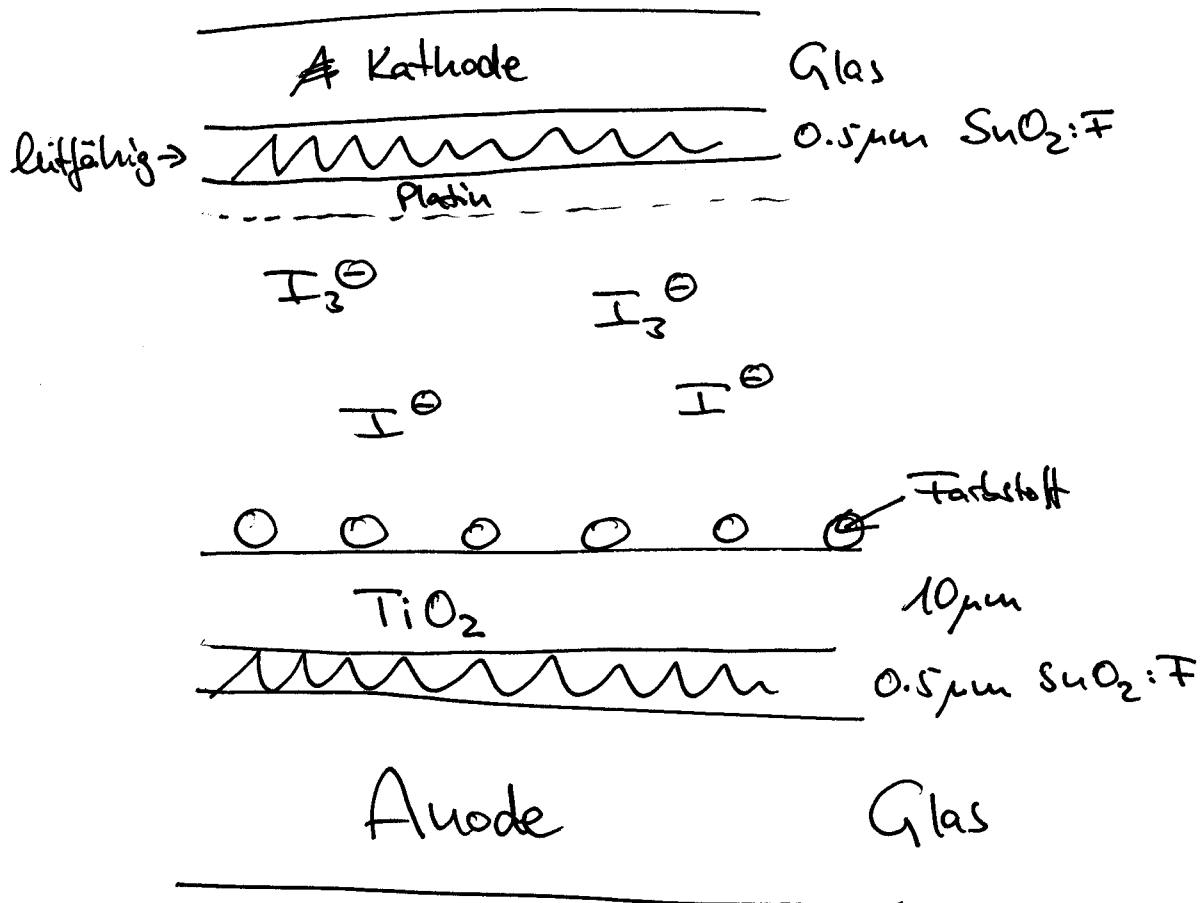 Kathode Glas
leitfähig → 0.5µm SnO₂:F
Platin
I₃⊖ I₃⊖
I⊖ I⊖
Farbstoff
TiO₂ 10µm
0.5µm SnO₂:F
Anode Glas